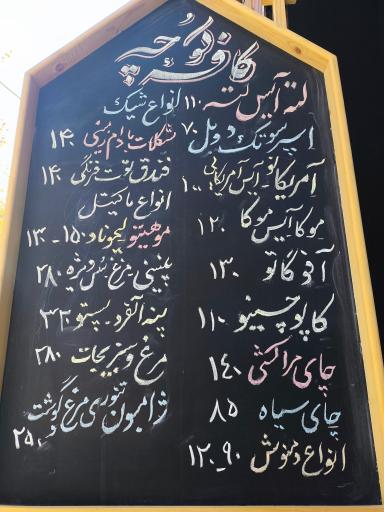 کافه کوچه
لته آیس لته ۱۱۰
اسپرسو تک دوبل ۷۰
آمریکانو آیس آمریکانو ۱۰۰
موکا آیس موکا ۱۲۰
آفوگاتو ۱۳۰
کاپوچینو ۱۱۰
چای مراکشی ۱۴۰
چای سیاه ۸۵
انواع دمنوش ۹۰-۱۲۰
انواع شیک
شکلات بادام زمینی ۱۴۰
فندق توت فرنگی ۱۴۰
انواع ماکتیل
موهیتو لیموناد ۱۵۰-۱۳۰
پنینی مرغ سس ویژه ۲۸۰
پنه آلفردو پستو ۳۲۰
مرغ و سبزیجات ۲۸۰
ژامبون تنوری مرغ گوشت
۲۵۰